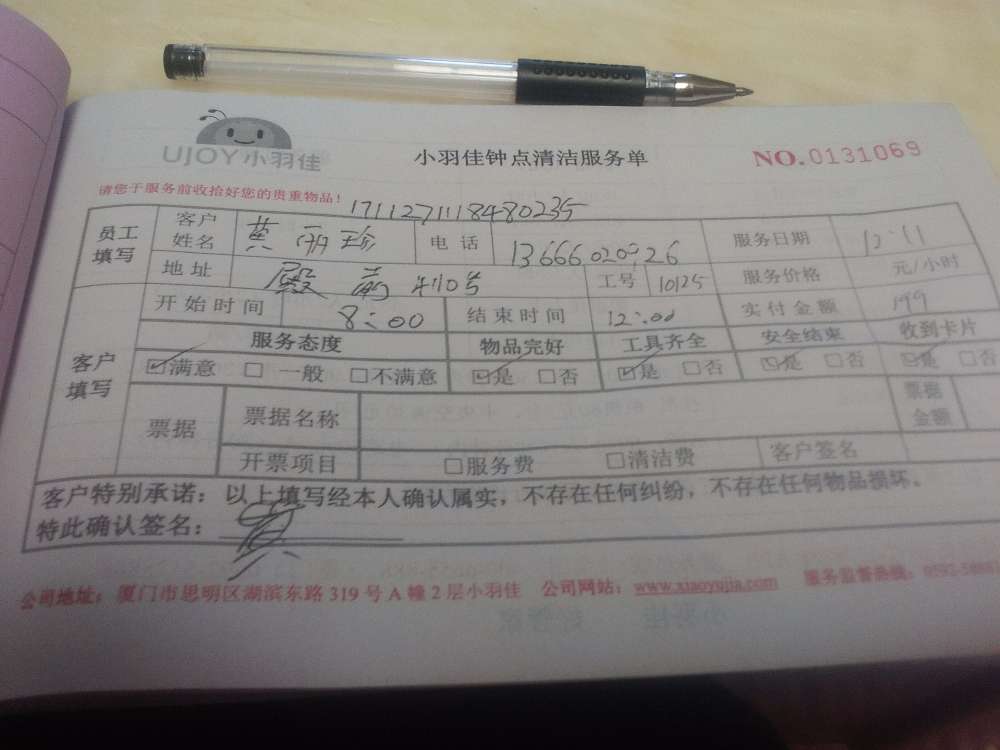 UJOY小羽佳
小羽佳钟点清洁服务单
NO.0131069
请您于服务前收拾好您的贵重物品!
1711271118480235
员工填写 客户姓名 黄丽珍 电话 13666020026 服务日期 12.11
地址 殿前 410号 工号 10125 服务价格 元/小时
客户填写 开始时间 8:00 结束时间 12:00 实付金额 199
服务态度 物品完好 工具齐全 安全结束 收到卡片
☑满意 □ 一般 □不满意 ☑是 □否 ☑是 □否 ☑是 □否 ☑是 □否
票据 票据名称 票据金额
开票项目 □服务费 □清洁费 客户签名
客户特别承诺:以上填写经本人确认属实,不存在任何纠纷,不存在任何物品损坏。
特此确认签名:黄
公司地址:厦门市思明区湖滨东路 319 号 A 幢 2 层小羽佳 公司网站:www.xiaoyujia.com 服务监督热线:0592-